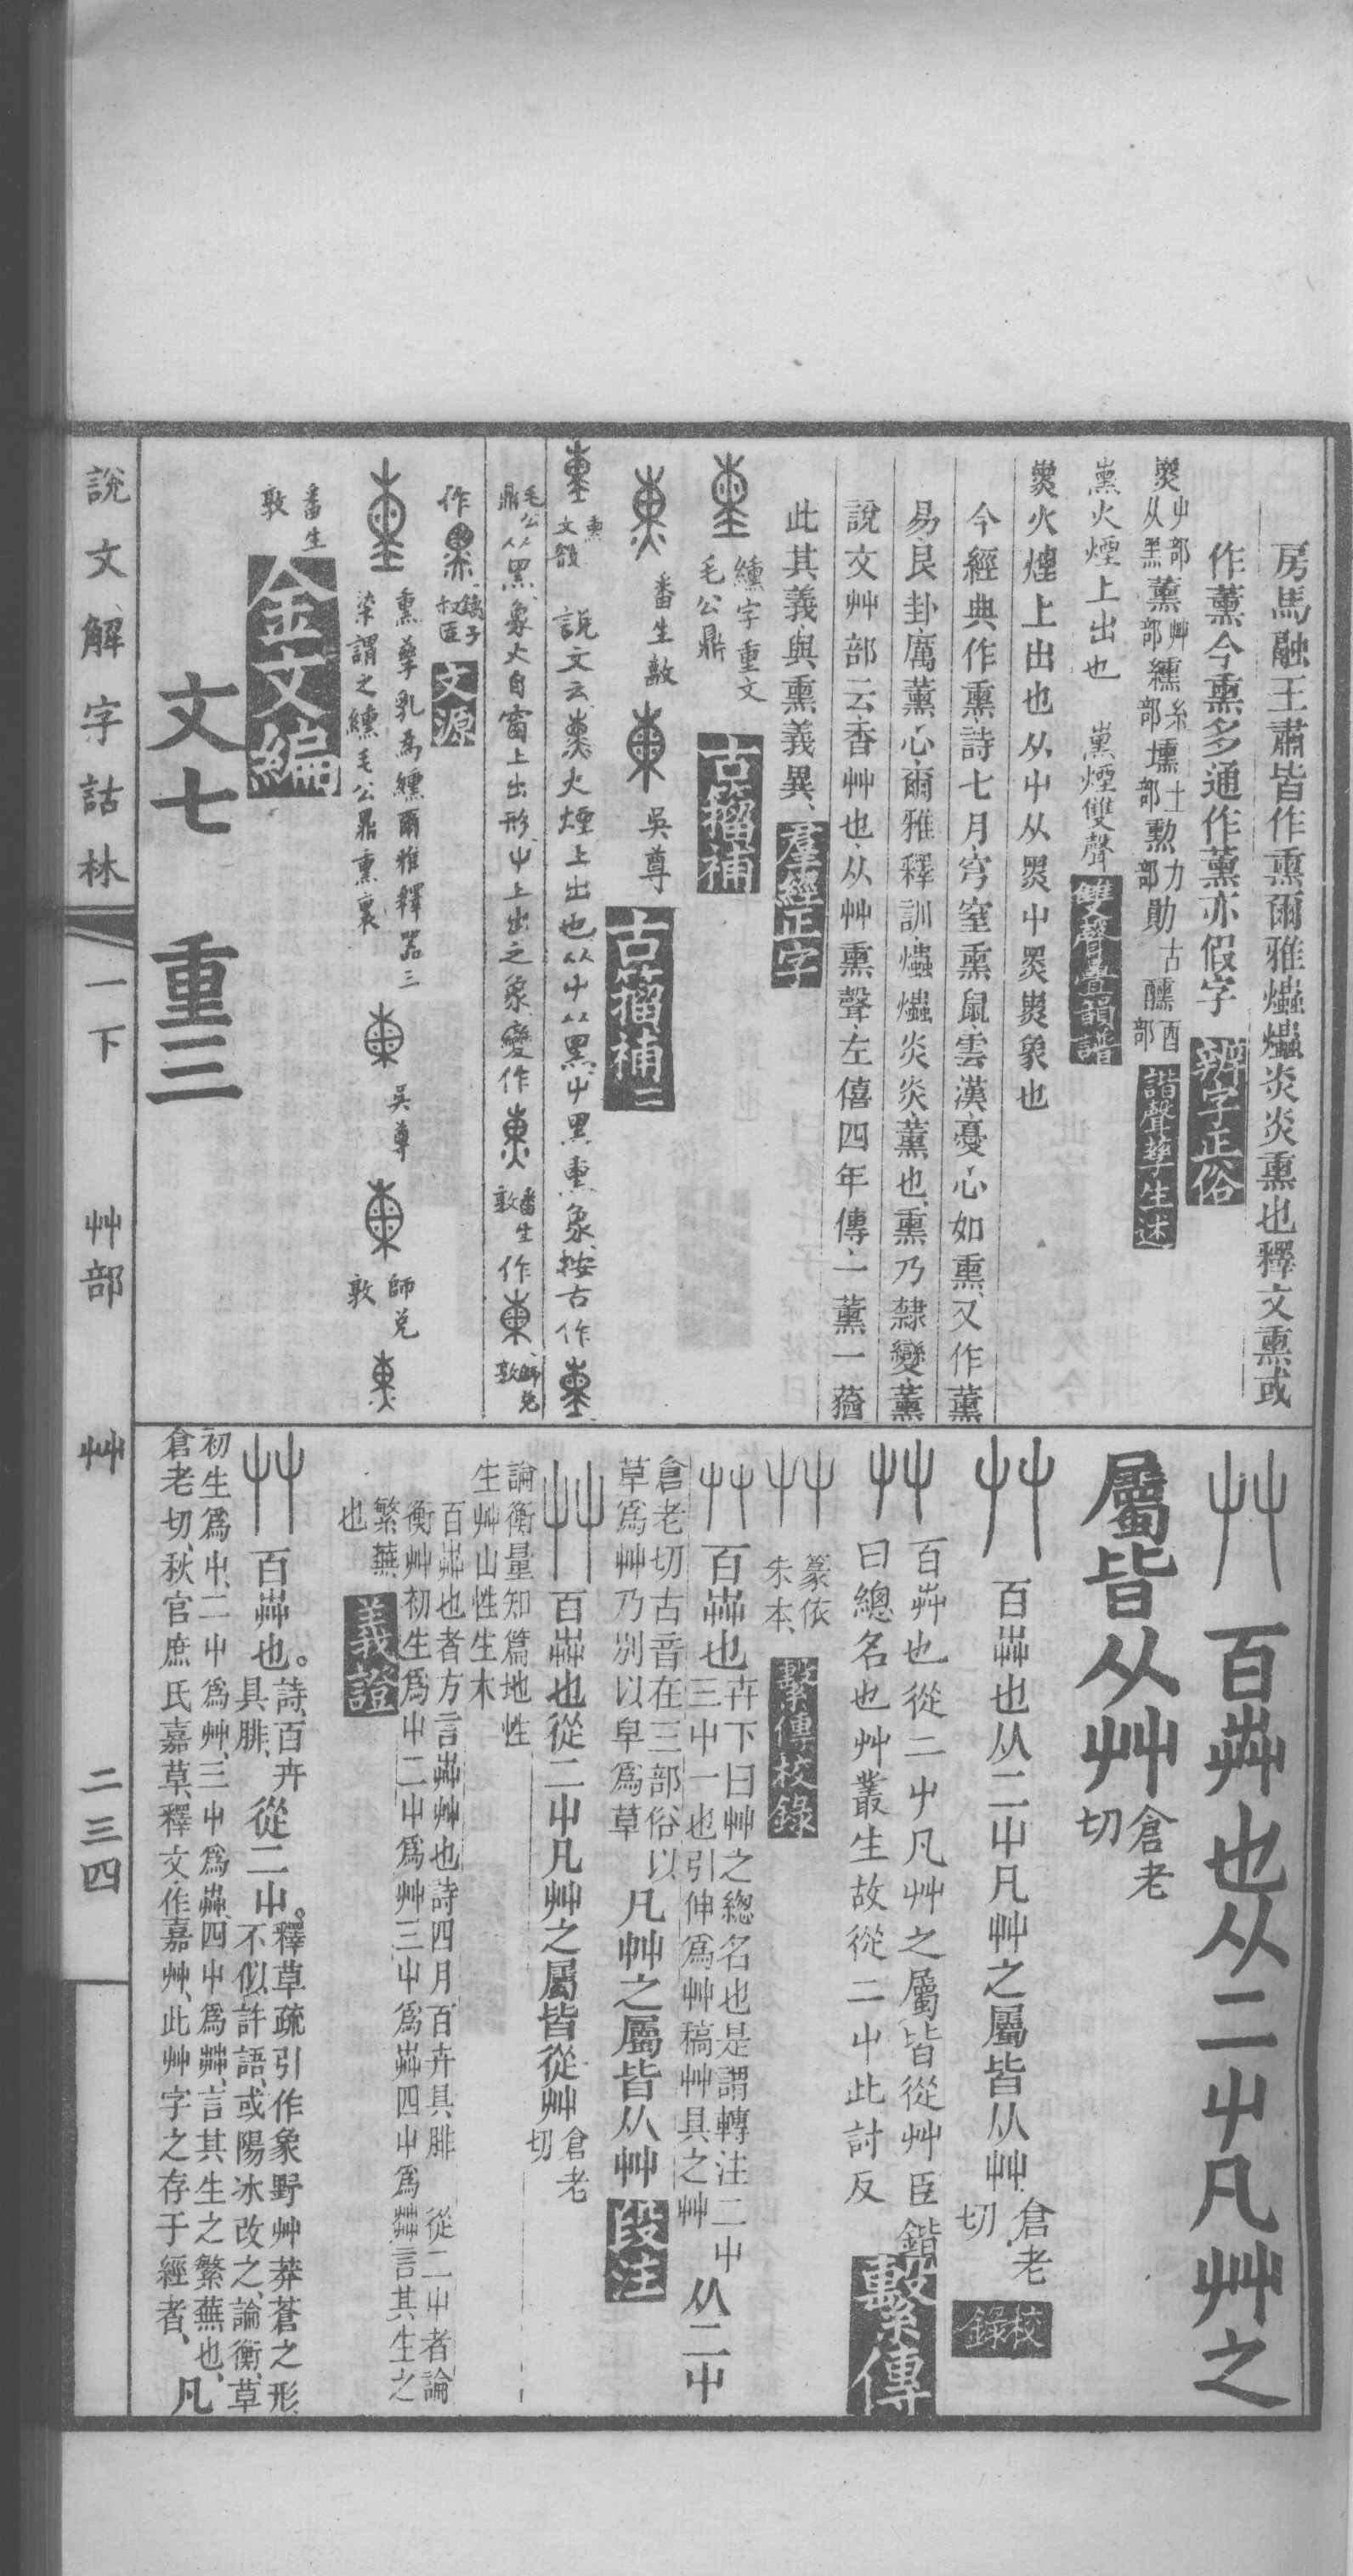 房馬融王肅皆作熏爾雅爞爞炎炎熏也釋文熏或
作薰今熏多通作薰亦假字 辨字正俗
屮部从黑 薰艸部 纁糸部 壎土部 勳力部 勛古 醺酉部 諧聲孳生述
熏火煙上出也 熏煙雙聲 雙聲疊韻譜
火煙上出也从屮从黑屮黑熏象也
今經典作熏詩七月穹窒熏鼠雲漢憂心如熏又作薰
易艮卦厲薰心爾雅釋訓爞爞炎炎薰也熏乃隸變薰
說文艸部云香艸也从艸熏聲左僖四年傳一薰一蕕
此其義與熏義異 羣經正字
纁字重文
毛公鼎 古籀補
番生敦 吳尊 古籀補二
熏文韻 說文云熏火煙上出也从屮从黑屮黑熏象按古作
毛公鼎从黑象火自窗上出形屮上出之象變作 番生敦 作 師兌敦
作 叔臣 文源
熏孳乳為纁爾雅釋器三
染謂之纁毛公鼎熏裏 吳尊 師兌敦
番生敦 金文編
文七 重三
說文解字詁林 一下 艸部 艸 二三四
艸 百芔也从二屮凡艸之
屬皆从艸 倉老切
艸 百芔也从二屮凡艸之屬皆从艸 倉老切 校錄
艸 百芔也從二屮凡艸之屬皆從艸臣鍇
曰總名也艸叢生故從二屮此討反 繫傳
艸 篆依朱本 繫傳校錄
艸 百芔也 卉下曰艸之總名也是謂轉注二屮
三屮一也引伸爲艸稿艸具之艸 从二屮
倉老切古音在三部俗以
草爲艸乃別以皁爲草 凡艸之屬皆从艸 段注
艸 百芔也從二屮凡艸之屬皆從艸 倉老切
論衡量知篇地性
生艸山性生木
百芔也者方言芔艸也詩四月百卉具腓 從二屮者論
衡艸初生爲屮二屮爲艸三屮爲芔四屮爲茻言其生之
繁蕪也 義證
艸 百芔也。詩、百卉具腓、從二屮。釋草疏引作象野艸莽蒼之形、
不似許語、或陽冰改之、論衡、草
初生爲屮、二屮爲艸、三屮爲芔、四屮爲茻、言其生之繁蕪也、
倉老切、秋官庶氏嘉草、釋文、作嘉艸、此艸字之存于經者、凡